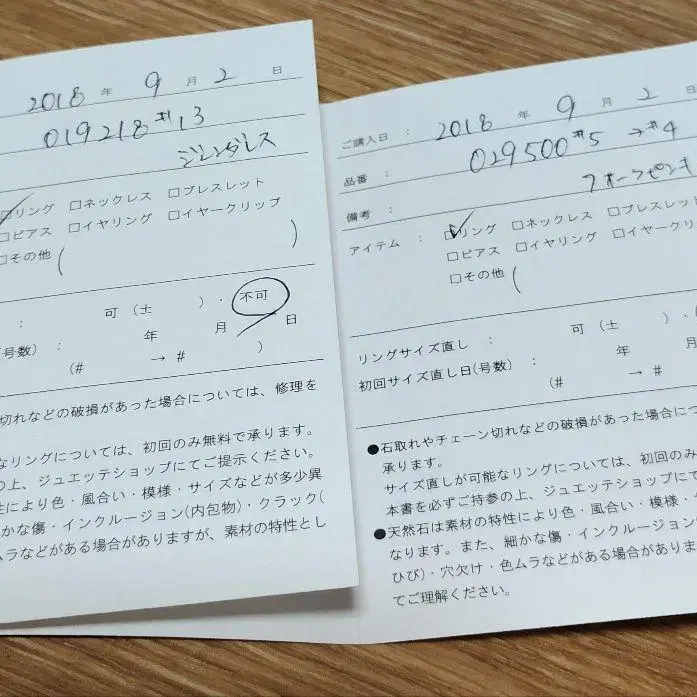 2018 年 9 月 2 日
019218 #13
ジレンダレス
□リング □ネックレス □ブレスレット
□ピアス □イヤリング □イヤークリップ
□その他( )
： 可 (士 )・不可
号数)： 年 月 日
(# → # )
切れなどの破損があった場合については、修理を
なリングについては、初回のみ無料で承ります。
の上、ジュエッテショップにてご提示ください。
性により色・風合い・模様・サイズなどが多少異
かな傷・インクルージョン(内包物)・クラック(
ムラなどがある場合がありますが、素材の特性とし
ご購入日： 2018 年 9 月 2 日
品番： 029500 #5 → #4
備考： フォーフピンキ
アイテム： □リング □ネックレス □ブレスレット
□ピアス □イヤリング □イヤークリ
□その他(
リングサイズ直し： 可 (士 )・
初回サイズ直し日(号数)： 年 月
(# → #
●石取れやチェーン切れなどの破損があった場合につ
承ります。
サイズ直しが可能なリングについては、初回のみ
本書を必ずご持参の上、ジュエッテショップにて
●天然石は素材の特性により色・風合い・模様・
なります。また、細かな傷・インクルージョン
ひび)・穴欠け・色ムラなどがある場合がありま
てご理解ください。